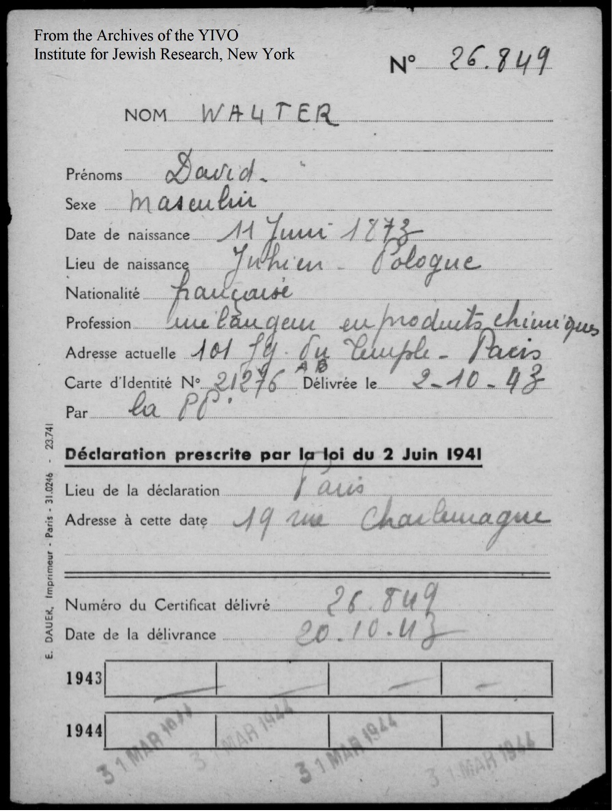 From the Archives of the YIVO
Institute for Jewish Research, New York
N° 26.849
NOM WALTER
Prénoms David.
Sexe masculin
Date de naissance 11 Juin 1873
Lieu de naissance Pologne
Nationalité française
Profession mélangeur en produits chimiques
Adresse actuelle 101 fg. du Temple - Paris
Carte d'Identité N° 21276 AB Délivrée le 2-10-43
Par la PP.
Déclaration prescrite par la loi du 2 Juin 1941
Lieu de la déclaration Paris
Adresse à cette date 19 rue Charlemagne
Numéro du Certificat délivré 26.849
Date de la délivrance 20.10.43
1943
1944
31 MAR 1944 31 MAR 1944 31 MAR 1944 31 MAR 1944
E. DAUEK, Imprimeur - Paris - 31.0246 - 23.741